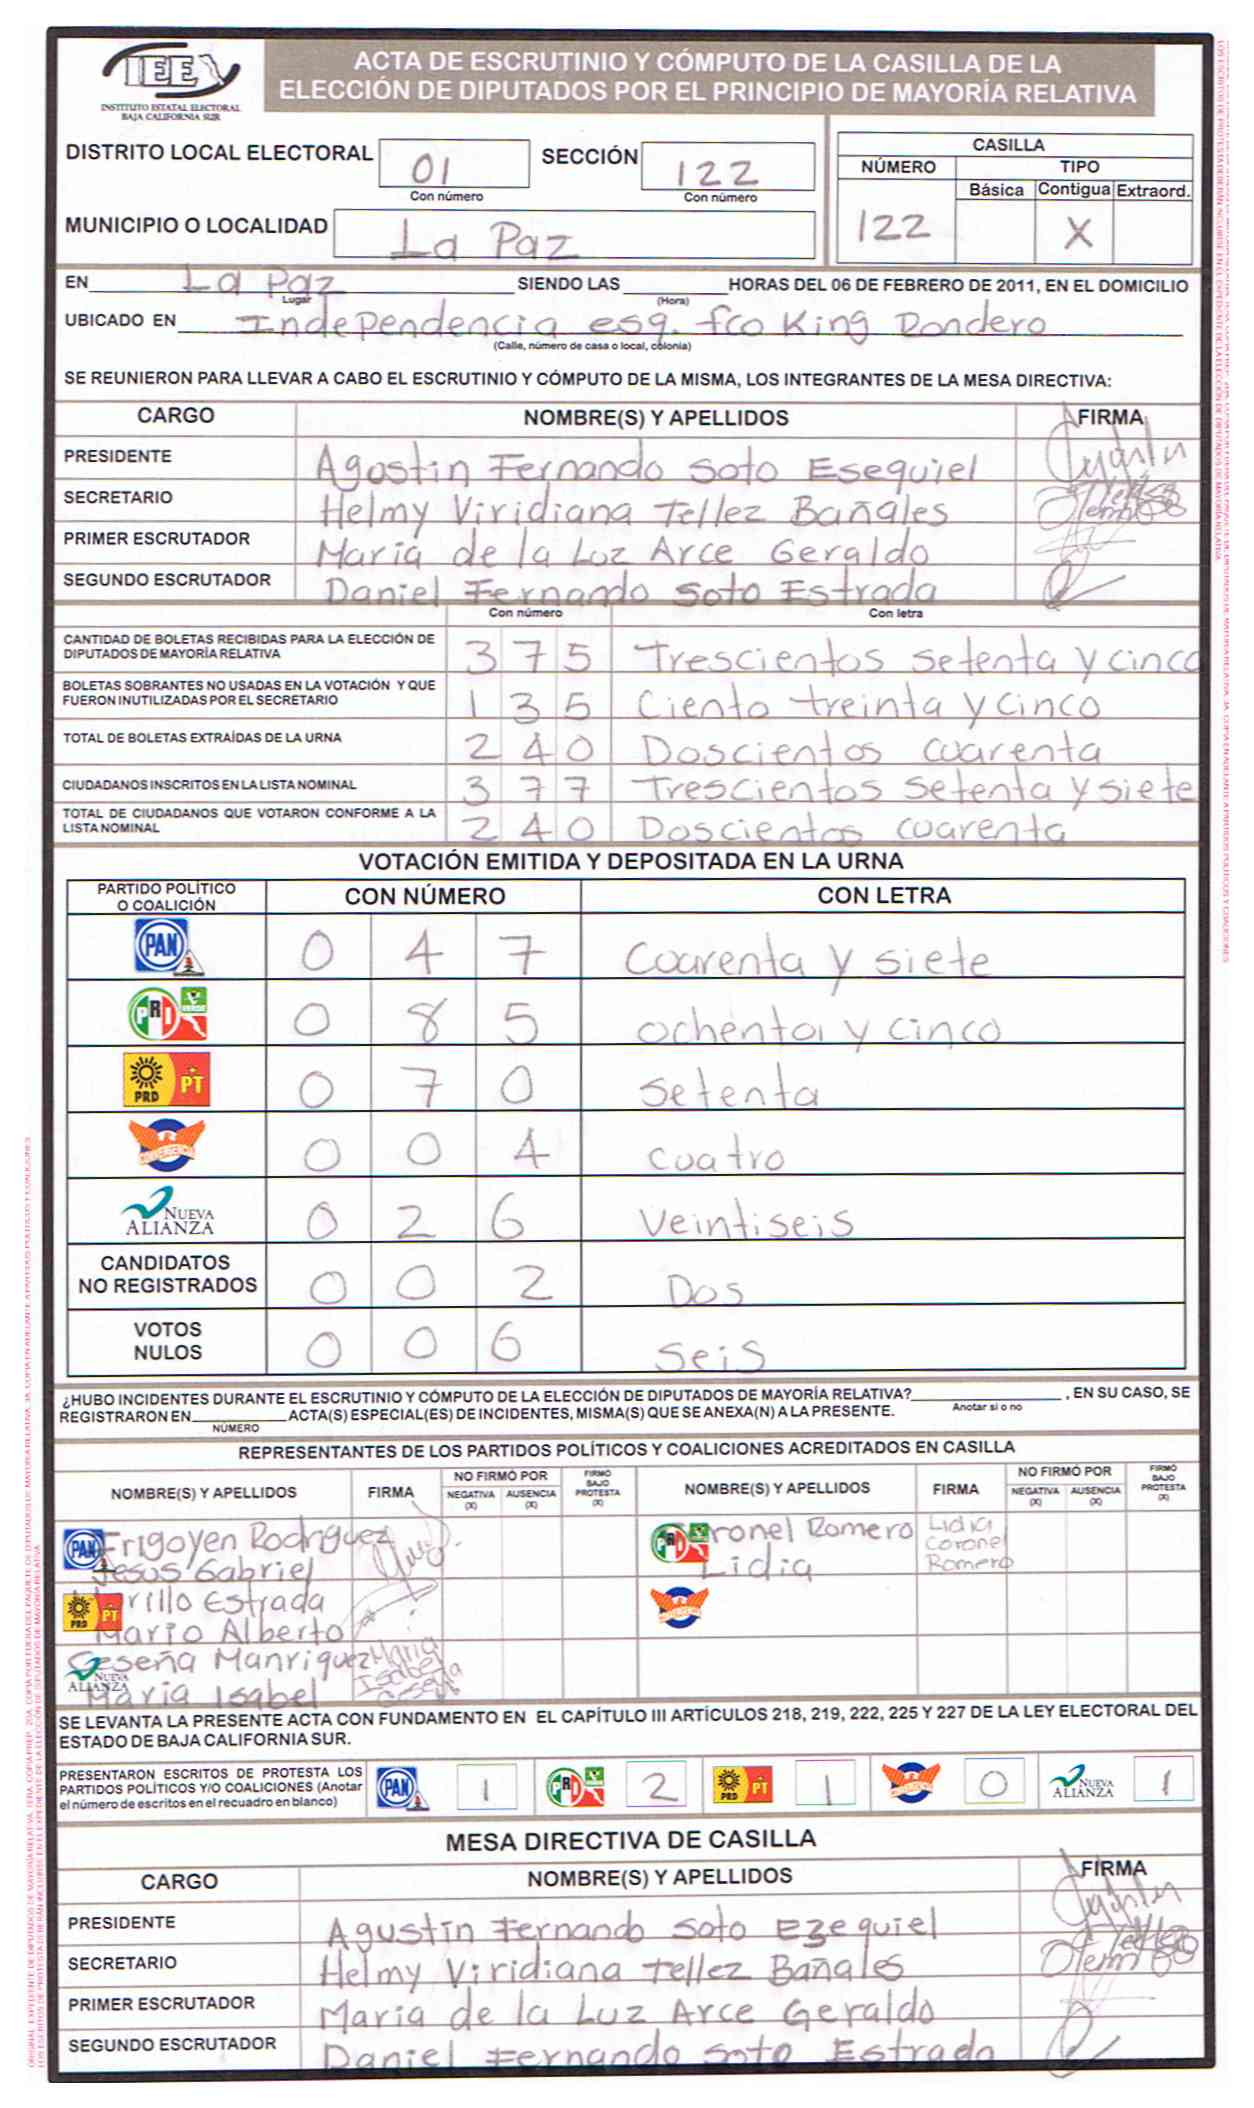 IEE
INSTITUTO ESTATAL ELECTORAL
BAJA CALIFORNIA SUR
ACTA DE ESCRUTINIO Y CÓMPUTO DE LA CASILLA DE LA
ELECCIÓN DE DIPUTADOS POR EL PRINCIPIO DE MAYORÍA RELATIVA
DISTRITO LOCAL ELECTORAL 01 SECCIÓN 122
Con número Con número
MUNICIPIO O LOCALIDAD La Paz
CASILLA
NÚMERO TIPO
Básica Contigua Extraord.
122 X
EN La Paz SIENDO LAS HORAS DEL 06 DE FEBRERO DE 2011, EN EL DOMICILIO
Lugar (Hora)
UBICADO EN Independencia esq. fco King Rondero
(Calle, número de casa o local, colonia)
SE REUNIERON PARA LLEVAR A CABO EL ESCRUTINIO Y CÓMPUTO DE LA MISMA, LOS INTEGRANTES DE LA MESA DIRECTIVA:
CARGO NOMBRE(S) Y APELLIDOS FIRMA
PRESIDENTE Agustin Fernando Soto Esequiel
SECRETARIO Helmy Viridiana Tellez Bañales
PRIMER ESCRUTADOR Maria de la Luz Arce Geraldo
SEGUNDO ESCRUTADOR Daniel Fernando Soto Estrada
Con número Con letra
CANTIDAD DE BOLETAS RECIBIDAS PARA LA ELECCIÓN DE
DIPUTADOS DE MAYORÍA RELATIVA 3 7 5 Trescientos setenta y cinco
BOLETAS SOBRANTES NO USADAS EN LA VOTACIÓN Y QUE
FUERON INUTILIZADAS POR EL SECRETARIO 1 3 5 Ciento treinta y cinco
TOTAL DE BOLETAS EXTRAÍDAS DE LA URNA 2 4 0 Doscientos cuarenta
CIUDADANOS INSCRITOS EN LA LISTA NOMINAL 3 7 7 Trescientos setenta y siete
TOTAL DE CIUDADANOS QUE VOTARON CONFORME A LA
LISTA NOMINAL 2 4 0 Doscientos cuarenta
VOTACIÓN EMITIDA Y DEPOSITADA EN LA URNA
PARTIDO POLÍTICO
O COALICIÓN CON NÚMERO CON LETRA
PAN 0 4 7 Coarenta y siete
PRI VERDE 0 8 5 ochenta y cinco
PRD PT 0 7 0 setenta
CONVERGENCIA 0 0 4 cuatro
NUEVA ALIANZA 0 2 6 veintiseis
CANDIDATOS
NO REGISTRADOS 0 0 2 Dos
VOTOS
NULOS 0 0 6 seis
¿HUBO INCIDENTES DURANTE EL ESCRUTINIO Y CÓMPUTO DE LA ELECCIÓN DE DIPUTADOS DE MAYORÍA RELATIVA? , EN SU CASO, SE
Anotar si o no
REGISTRARON EN ACTA(S) ESPECIAL(ES) DE INCIDENTES, MISMA(S) QUE SE ANEXA(N) A LA PRESENTE.
NÚMERO
REPRESENTANTES DE LOS PARTIDOS POLÍTICOS Y COALICIONES ACREDITADOS EN CASILLA
NOMBRE(S) Y APELLIDOS FIRMA NO FIRMÓ POR NEGATIVA (X) AUSENCIA (X) FIRMÓ BAJO PROTESTA (X) NOMBRE(S) Y APELLIDOS FIRMA NO FIRMÓ POR NEGATIVA (X) AUSENCIA (X) FIRMÓ BAJO PROTESTA (X)
PAN Frigoyen Rodriguez
Jesus Gabriel
PRI ronel Romero Lidia
Lidia Coronel
Romero
PRD PT rillo Estrada
Mario Alberto
NUEVA ALIANZA Ceseña Manriquez Maria
Maria Isabel Isabel
Ceseña
SE LEVANTA LA PRESENTE ACTA CON FUNDAMENTO EN EL CAPÍTULO III ARTÍCULOS 218, 219, 222, 225 Y 227 DE LA LEY ELECTORAL DEL
ESTADO DE BAJA CALIFORNIA SUR.
PRESENTARON ESCRITOS DE PROTESTA LOS
PARTIDOS POLÍTICOS Y/O COALICIONES (Anotar
el número de escritos en el recuadro en blanco)
PAN 1 PRI 2 PRD PT 1 CONVERGENCIA 0 NUEVA ALIANZA 1
MESA DIRECTIVA DE CASILLA
CARGO NOMBRE(S) Y APELLIDOS FIRMA
PRESIDENTE Agustin Fernando Soto Ezequiel
SECRETARIO Helmy Viridiana Tellez Bañales
PRIMER ESCRUTADOR Maria de la Luz Arce Geraldo
SEGUNDO ESCRUTADOR Daniel Fernando Soto Estrada